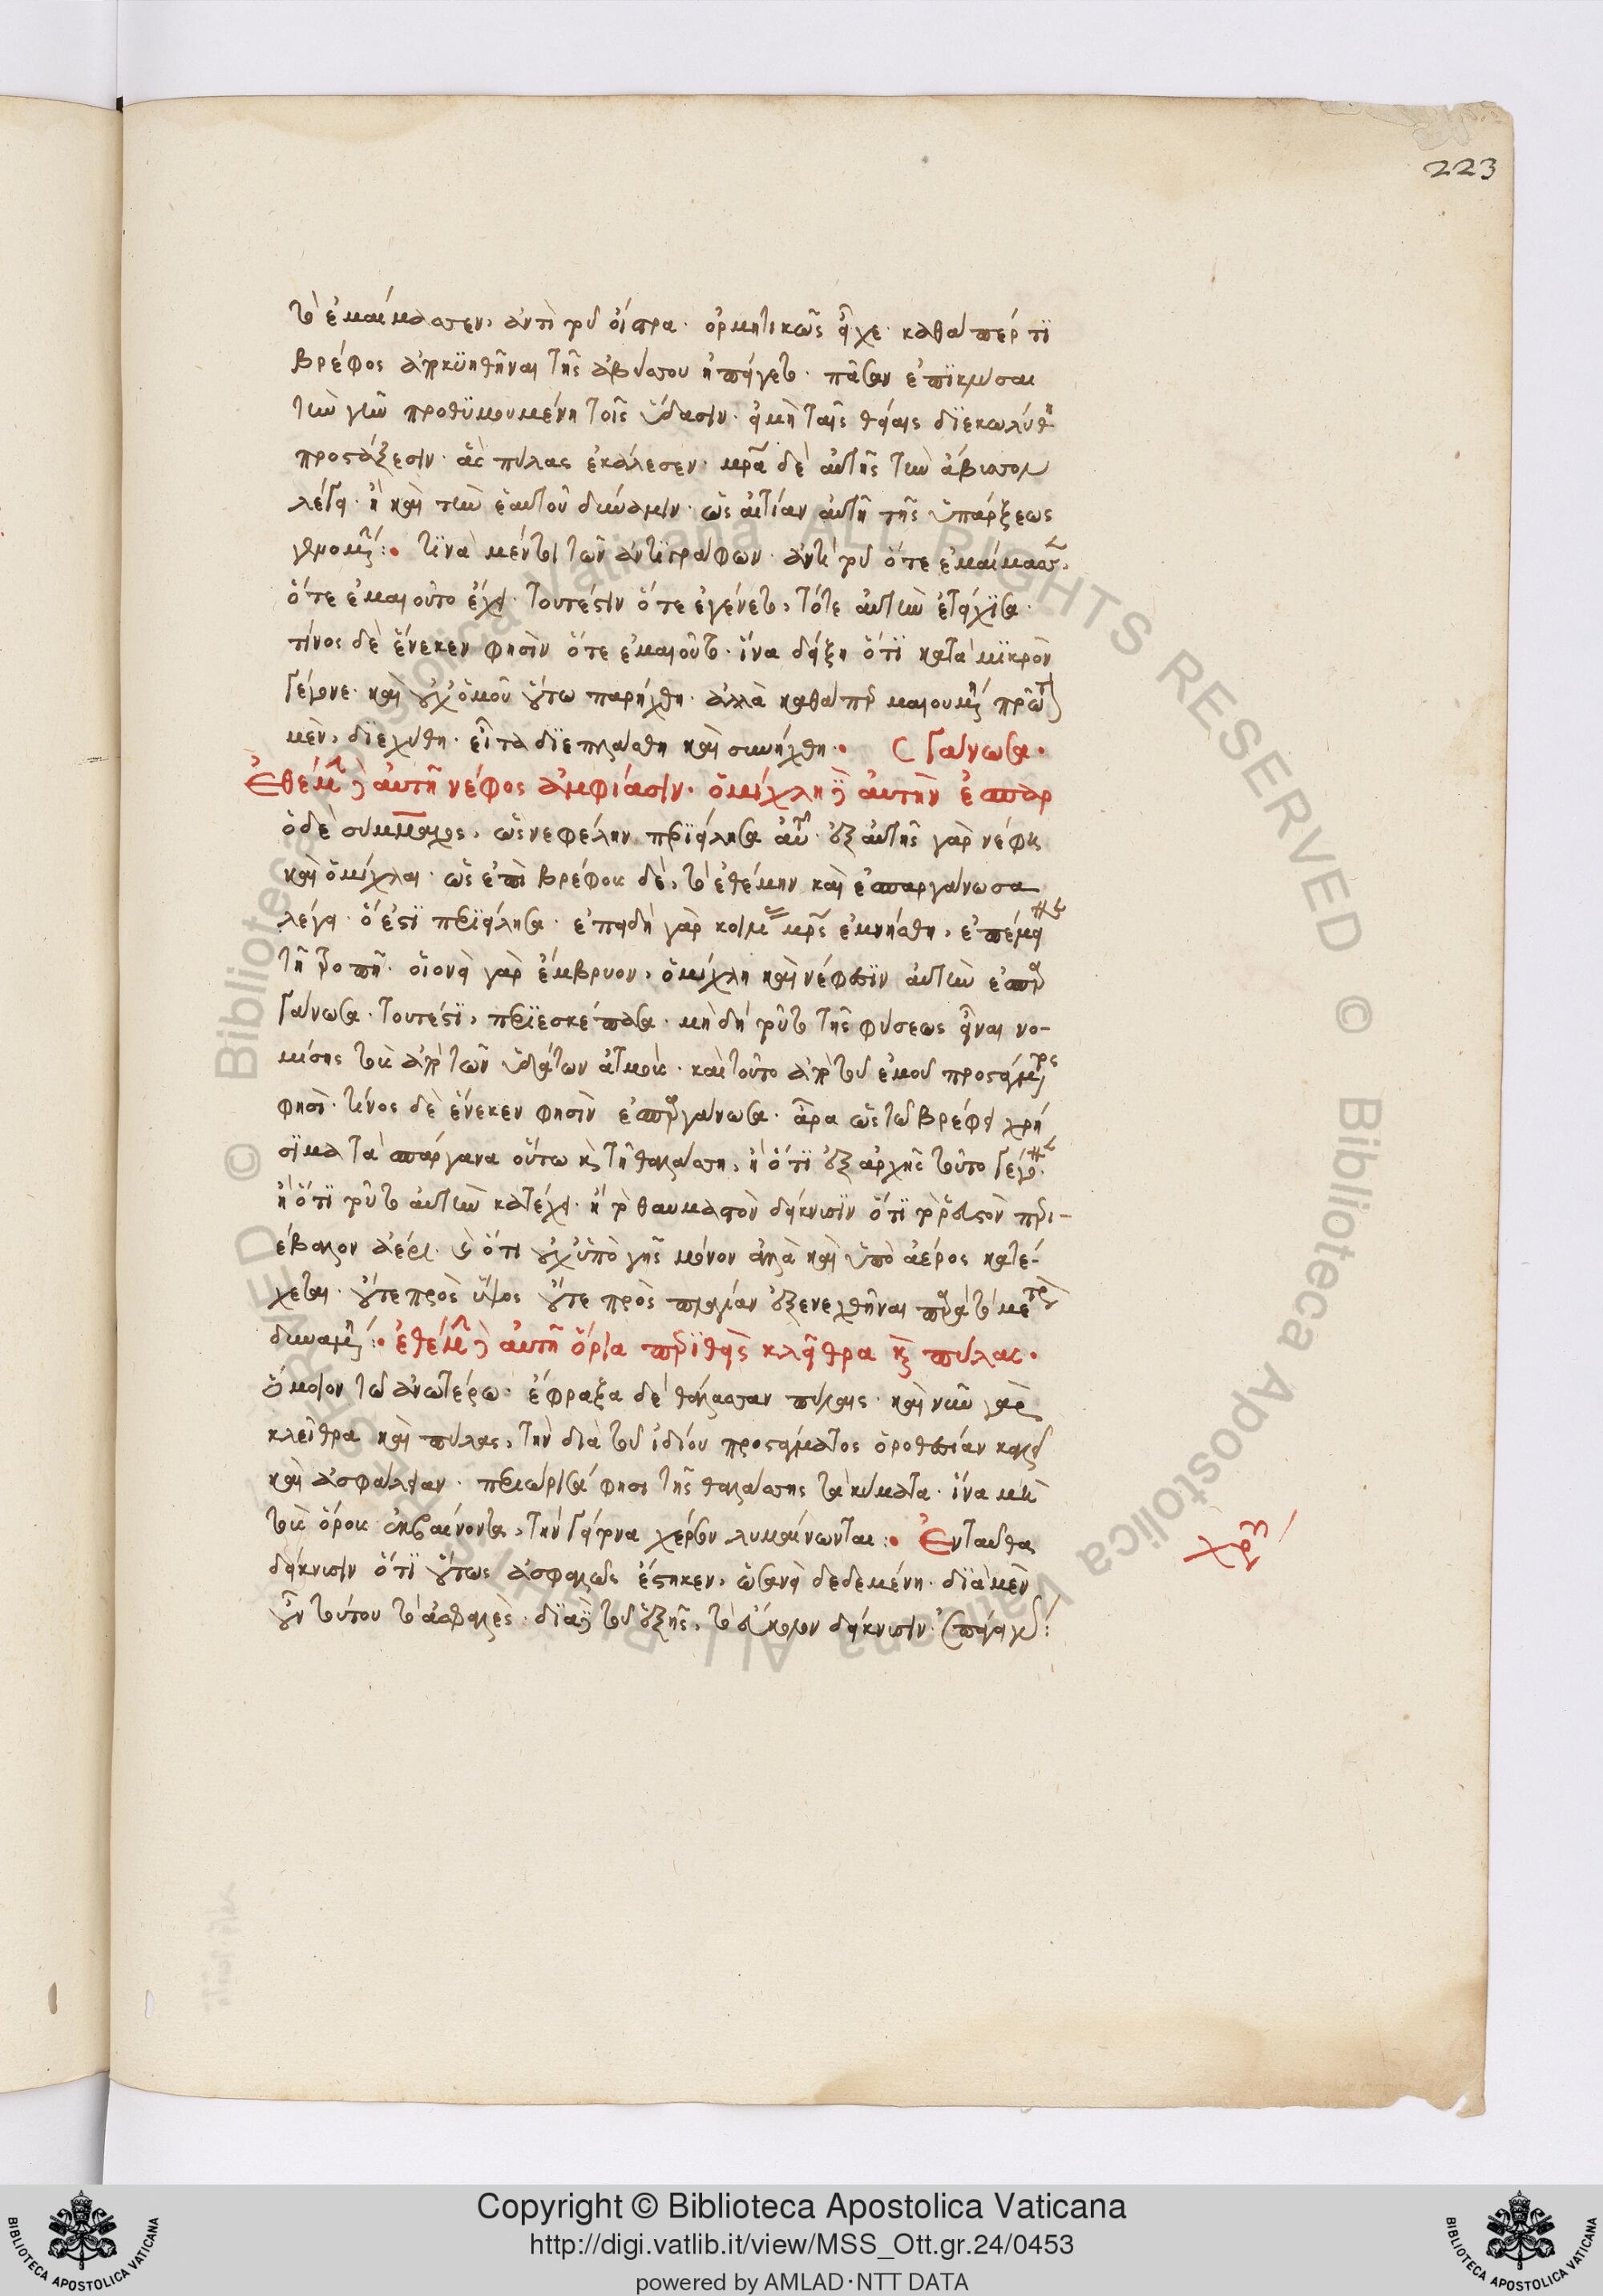 223
τὸ ἐμαίμασσεν, ἀντὶ τοῦ οἴστρα. ὁρμητικῶς εἶχε. καθάπέρ τϊ
βρέφος ἀποκϋηθῆναι τῆς ἀβύσσου ἠπείγετο. πᾶσαν ἐπϊκλύσαι
τὴν γῆν προθϋμουμένη τοῖς ὕδασιν. εἰ μὴ ταῖς θείαις δϊεκωλύθη
προστάξεσιν. ἃς πύλας ἐκάλεσεν. μητέρα δὲ αὐτῆς τὴν ἄβυσσον
λέγει. ἢ καὶ τὴν ἑαυτοῦ δύναμιν. ὡς αἰτίαν αὐτῆ τῆς ὑπάρξεως
γενομένην: τϊνὰ μέντοι τῶν ἀντϊγράφων. ἀντὶ τοῦ ὅτε ἐμαίμασσεν,
ὅτε ἐμαιοῦτο ἔχει. τουτέστιν ὅτε ἐγένετο, τότε αὐτὴν ἐτείχϊσα.
τίνος δὲ ἕνεκεν φησὶν ὅτε ἐμαιοῦτο. ἵνα δείξη ὅτϊ κατὰ μϊκρὸν
γέγονε. καὶ οὐχ ὁμοῦ οὕτω παρήχθη. ἀλλὰ καθάπερ μαιουμένη πρῶτον
μὲν, δϊεχύθη. εἶτα δϊεπλάσθη καὶ συνήχθη. ( γάνωσα.
Ἐθέμην δὲ αὐτῆ νέφος ἀμφίασιν. ὁμίχλη δὲ αὐτὴν ἐσπαρ
ὁ δὲ σύμμαχος, ὡς νεφέλην περϊείλησα αὐτήν. ἐξ αὐτῆς γὰρ νέφη
καὶ ὁμίχλαι. ὡς ἐπὶ βρέφους δὲ, τὸ ἐθέμην καὶ ἐσπαργάνωσα
λέγει. ὅ ἐστϊ περϊείλησα. ἐπειδὴ γὰρ κοιλίας μητρὸς ἐμνήσθη, ἐπέμεινε
τῆ τροπῆ. οἱονεὶ γὰρ ἔμβρυον, ὁμίχλη καὶ νέφεσϊν αὐτὴν ἐσπαρ
γάνωσα. τουτέστϊ, περϊεσκέπασα. μὴ δὴ τοῦτο τῆς φύσεως εἶναι νο-
μίσης τοὺς ἀπὸ τῶν ὑδάτων ἀτμούς. καὶ τοῦτο ἀπὸ τοῦ ἐμοῦ προστάγματος
φησὶ. τίνος δὲ ἕνεκεν φησὶν ἐσπαργάνωσα. ἆρα ὡς τῶ βρέφει χρή
σϊμα τὰ σπάργανα οὕτω καὶ τῆ θαλάσση, ἢ ὅτϊ ἐξ ἀρχῆς τοῦτο γέγονεν.
ἢ ὅτϊ τοῦτο αὐτὴν κατέχει. ἢ τὸ θαυμαστὸν δείκνυσϊν ὅτϊ τὸ ῥευστὸν περι-
έβαλον ἀέρι. καὶ ὅτι οὐχ ὑπὸ γῆς μόνον ἀλλὰ καὶ ὑπὸ ἀέρος κατέ-
χεται. οὔτε πρὸς ὕψος οὔτε πρὸς πλαγίαν ἐξενεχθῆναι παρὰ τὸ μέτρον
δυναμένη: ἐθέμην δὲ αὐτῆ ὅρια περϊθεὶς κλεῖθρα καὶ πύλας.
ὅμοιον τῶ ἀνωτέρω. ἔφραξα δὲ θάλασσαν πύλαις. καὶ νῦν γὰρ
κλεῖθρα καὶ πύλας, τὴν διὰ τοῦ ἰδίου προστάγματος ὁροθεσίαν καλεῖ
καὶ ἀσφάλειαν. περιώρισά φησι τῆς θαλάσσης τὰ κύματα. ἵνα μὴ
τοὺς ὅρους ἐκβαίνοντα, τὴν γείτονα χέρσον λυμαίνωνται: Ἐνταῦθα
δείκνυσιν ὅτϊ οὕτως ἀσφαλῶς ἕστηκεν, ὡσανεὶ δεδεμένη. δϊὰ μὲν
οὖν τούτου τὸ ἀσφαλὲς. δϊὰ δὲ τοῦ ἑξῆς, τὸ εὔκολον δείκνυσιν. (ἐπάγει γάρ:
Copyright © Biblioteca Apostolica Vaticana
http://digi.vatlib.it/view/MSS_Ott.gr.24/0453
powered by AMLAD·NTT DATA